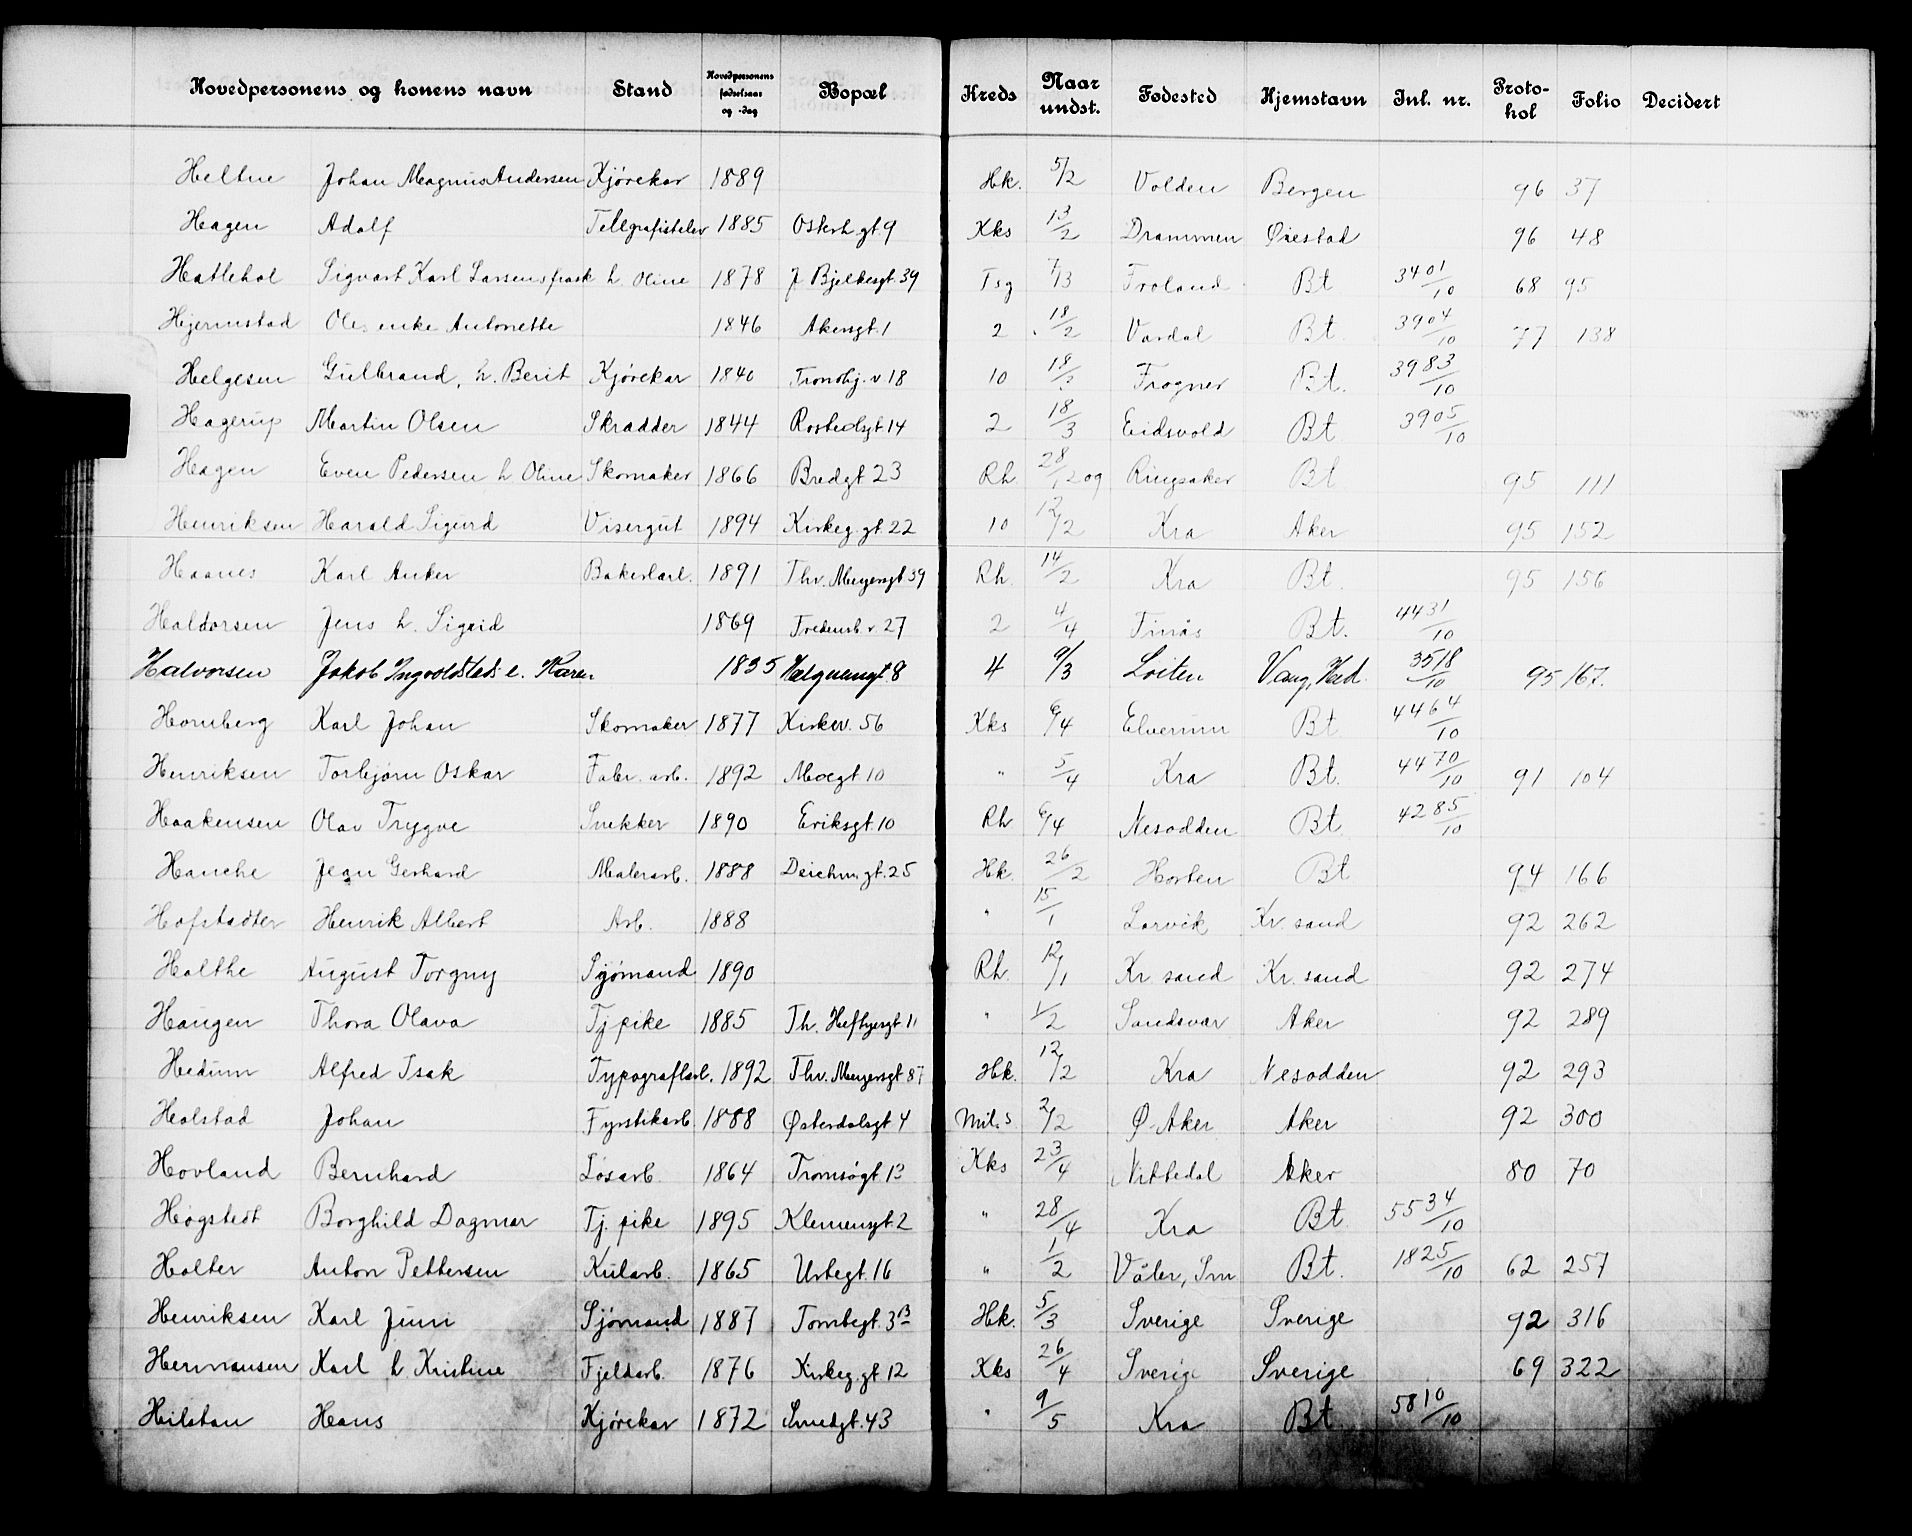 Hovedpersonens og konens navn Stand Hovedpersonens fødselsaar og -dag Bopæl Kreds Naar undst. Fødested Hjemstavn Inl. nr. Protokol Folio Decidert
Heltne Johan Magnus Andersen Kjørekar 1889 Hk. 5/2 Volden Bergen 96 37
Hagen Adolf Tellgrafistelev 1885 Osterh.gt. 9 Kks 13/2 Drammen Øiestad 96 48
Hattehol Sigvart Karl Larsens frask h. Oline 1878 J Bjelkesgt. 39 Tsg 7/3 Froland Bt 3401/10 68 95
Hjermstad Ole enke Antonette 1846 Akersgt. 1 2 18/2 Vardal Bt. 3904/10 77 138
Helgesen Gulbrand, h. Berit Kjørekar 1840 Trondhj. v 18 10 18/3 Frogner Bt. 3983/10
Hagerup Martin Olsen Skrædder 1844 Rostedsgt 14 2 18/3 Eidsvold Bt 3905/10
Hagen Even Pedersen h Oline Skomaker 1866 Bredgt 23 Rh 28/12 09 Ringsaker Bt 95 111
Henriksen Harald Sigurd Visergut 1894 Kirkeg.gt. 22 10 12/2 Kra Aker 95 152
Haanes Karl Anker Bakerlærl. 1891 Thv. Meyersgt 39 Rh. 14/2 Kra Bt. 95 156
Haldorsen Jens h. Sigrid 1869 Fredensb. v. 27 2 4/4 Tinås Bt. 4431/10
Halvorsen Jakob Ingvoldstad: e. Karen 1835 Hælgesensgt 8 4 9/3 Løiten Vang, Hed. 3518/10 95 167.
Hornberg Karl Johan Skomaker 1877 Kirkev. 56 Kks 6/4 Elverum Bt 4464/10
Henriksen Torbjørn Oskar Fabr. arb. 1892 Moegt. 10 " 5/4 Kra Bt. 4470/10 91 104
Haakensen Olav Trygve Snekker 1890 Eriksgt. 10 Rh 6/4 Nesodden Bt. 4285/10
Hanche Jean Gerhard Malerarb. 1888 Deichm.gt. 25 Hk. 26/2 Horten Bt 94 166
Hofstadter Henrik Albert Arb. 1888 " 15/1 Larvik Kr. sand 92 262
Holthe August Torgny Sjømand 1890 Rh. 12/1 Kr sand Kr. sand 92 274
Haugen Thora Olava Tj pike 1885 Th. Heftyesgt 11 " 1/2 Sandsvær Aker 92 289
Hedum Alfred Isak Typograflærl. 1892 Thv. Meyersgt 87 Hk. 12/2 Kra Nesodden 92 293
Halstad Johan Fyrstikarb. 1888 Østerdalsgt 4 Mil.s 2/2 Ø. Aker Aker 92 300
Hovland Bernhard Løsarb. 1864 Tromsøgt. 13 Kks 23/4 Nittedal Aker 80 70
Høgstedt Borghild Dagmar Tj. pike 1895 Klemensgt. 2 " 28/4 Kra Bt. 5534/10
Holter Anton Pettersen Kularb. 1865 Urtegt. 16 " 1/2 Våler, Sm Bt. 1825/10 62 257
Henriksen Karl Juni Sjømand 1887 Tomtegt. 3 B Hk. 5/3 Sverige Sverige 92 316
Hermansen Karl h Kristine Fjeldarb. 1876 Kirkeg.gt. 12 Kks 26/4 Sverige Sverige 69 322
Hilstan Hans Kjørekar 1872 Smedgt. 43 " 9/5 Kra Bt 5810/10